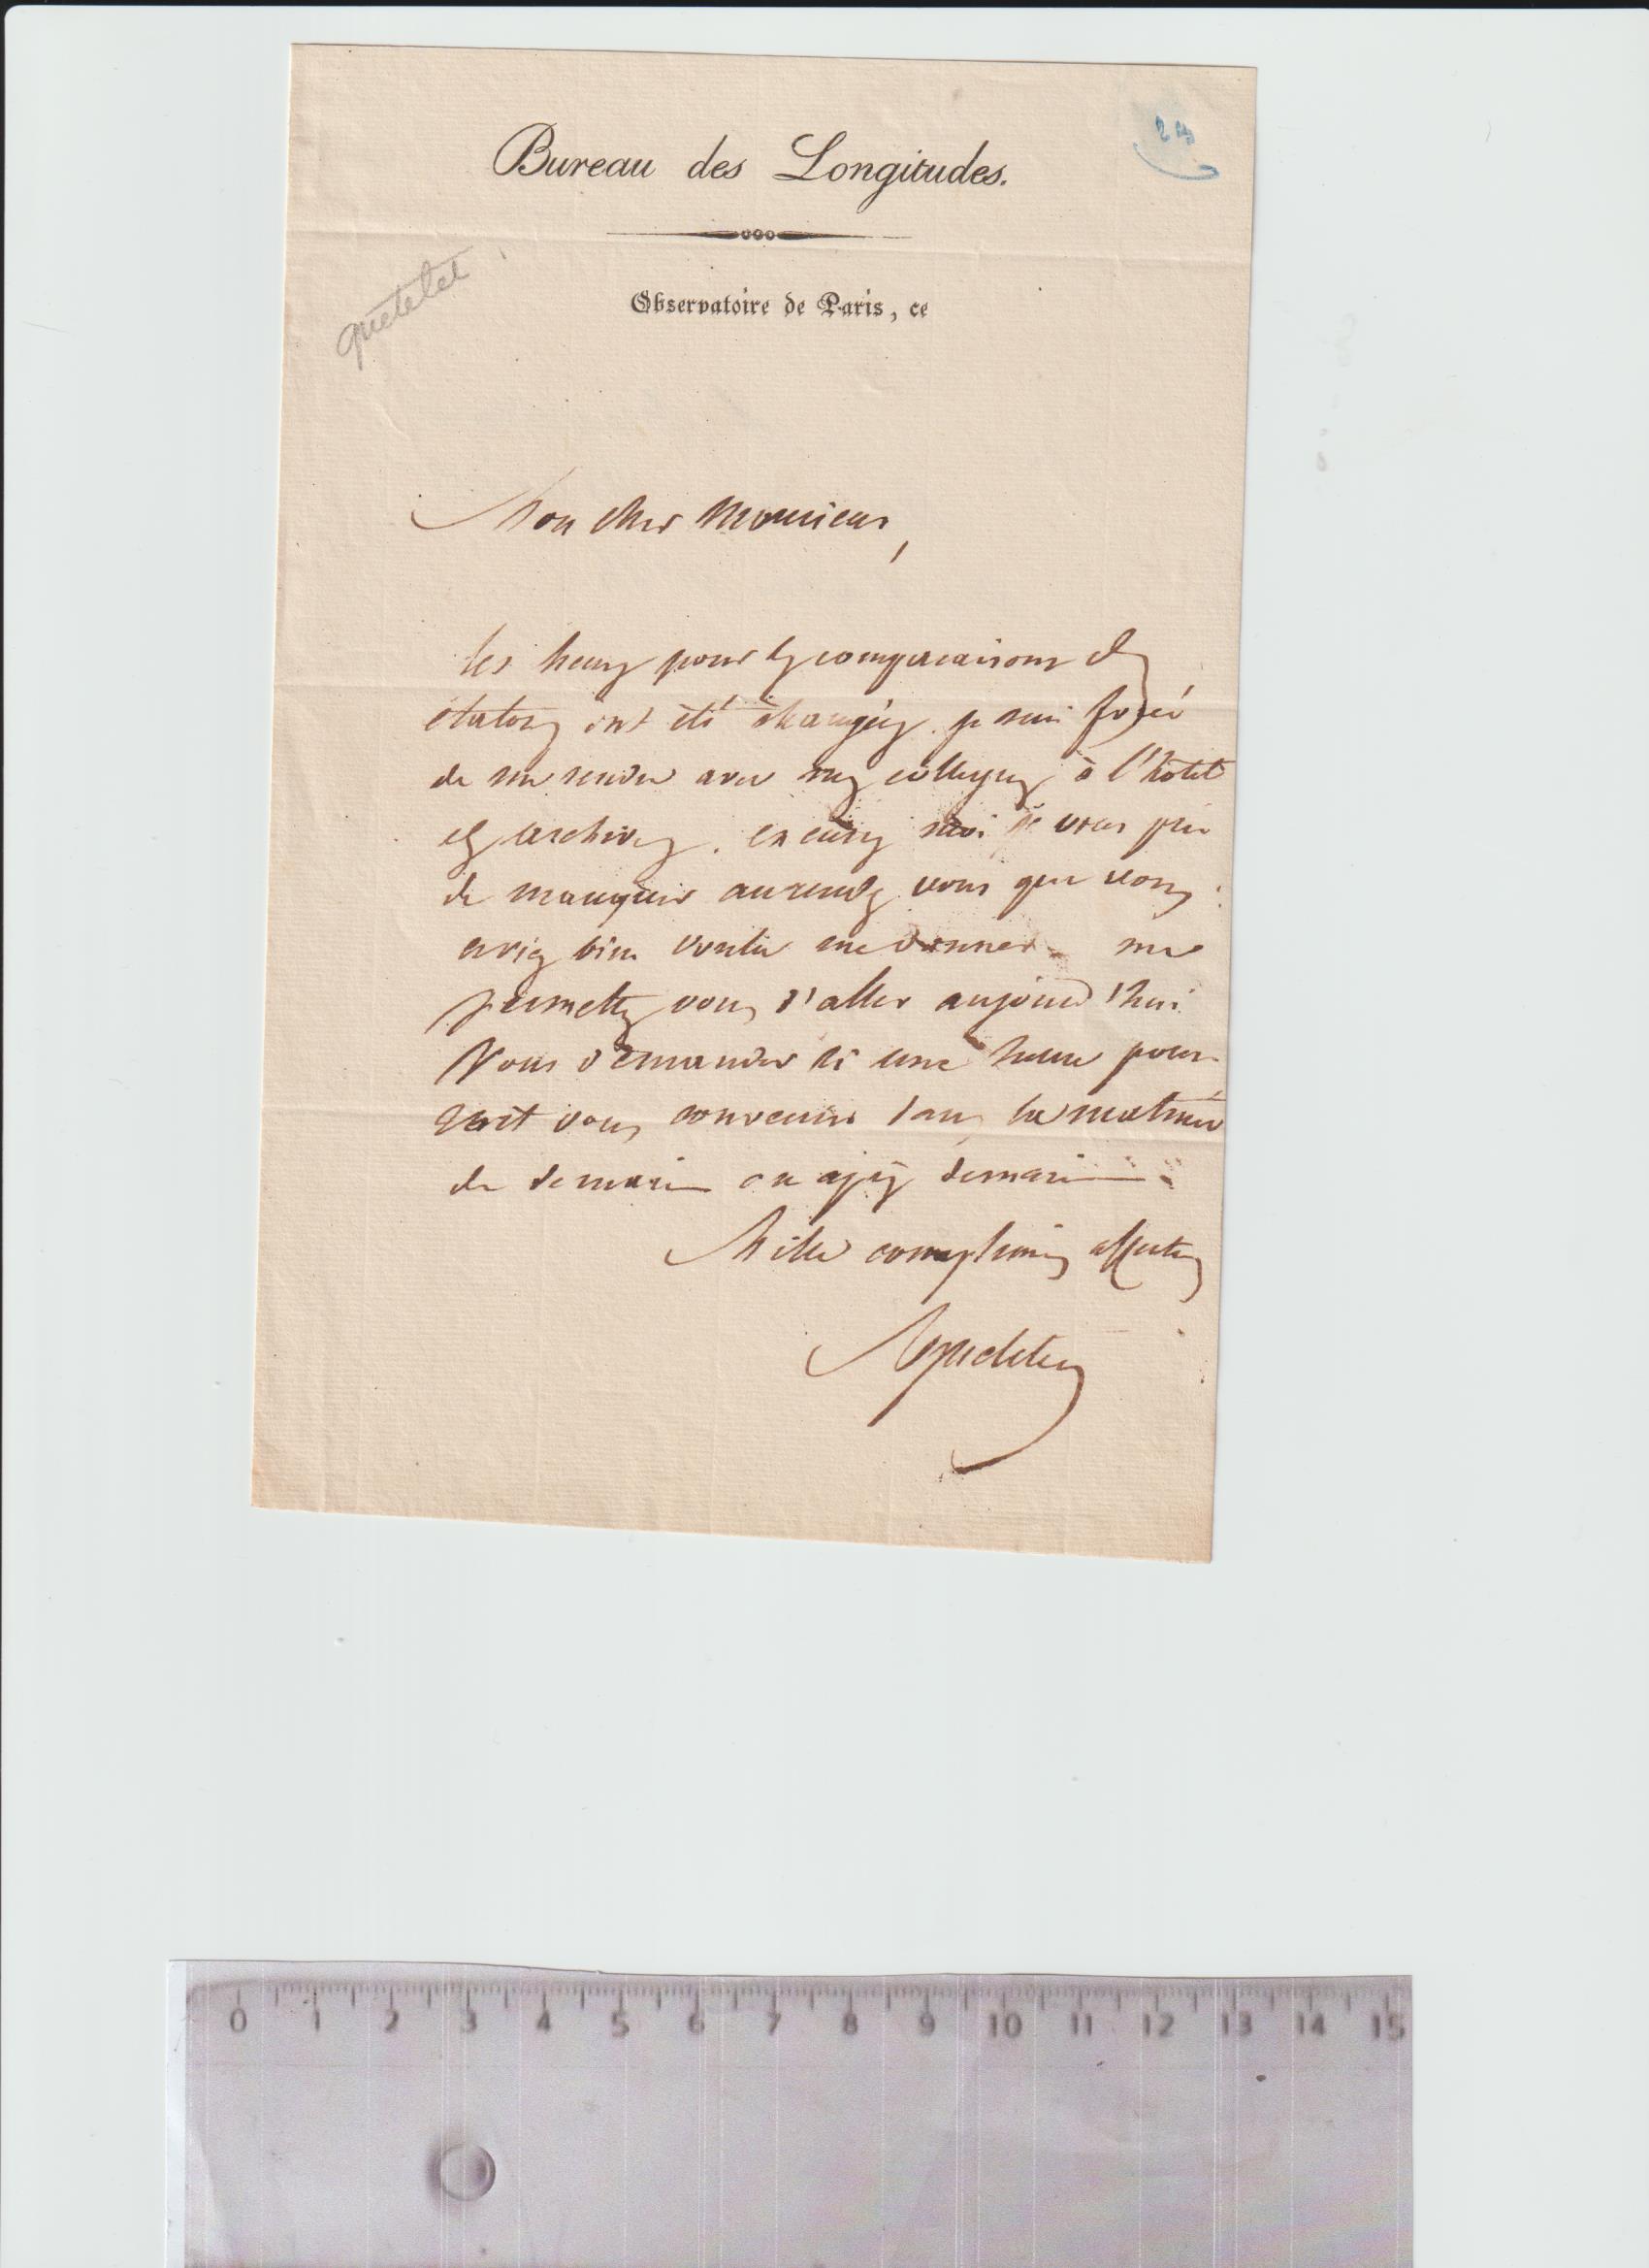 24
Bureau des Longitudes.
quetelet
Observatoire de Paris, ce
Mon cher Monsieur,
les heures pour les comparaisons des
étalons ont été changées. je suis forcé
de me rendre avec mes collègues à l'hôtel
des archives. excusez moi je vous prie
de manquer au rendez vous que vous
aviez bien voulu me donner. me
permettez vous d'aller aujourd'hui
Vous demander si une heure pour-
rait vous convenir dans la matinée
de demain ou après demain.
Mille complimens affectueux
Aquetelet
0 1 2 3 4 5 6 7 8 9 10 11 12 13 14 15